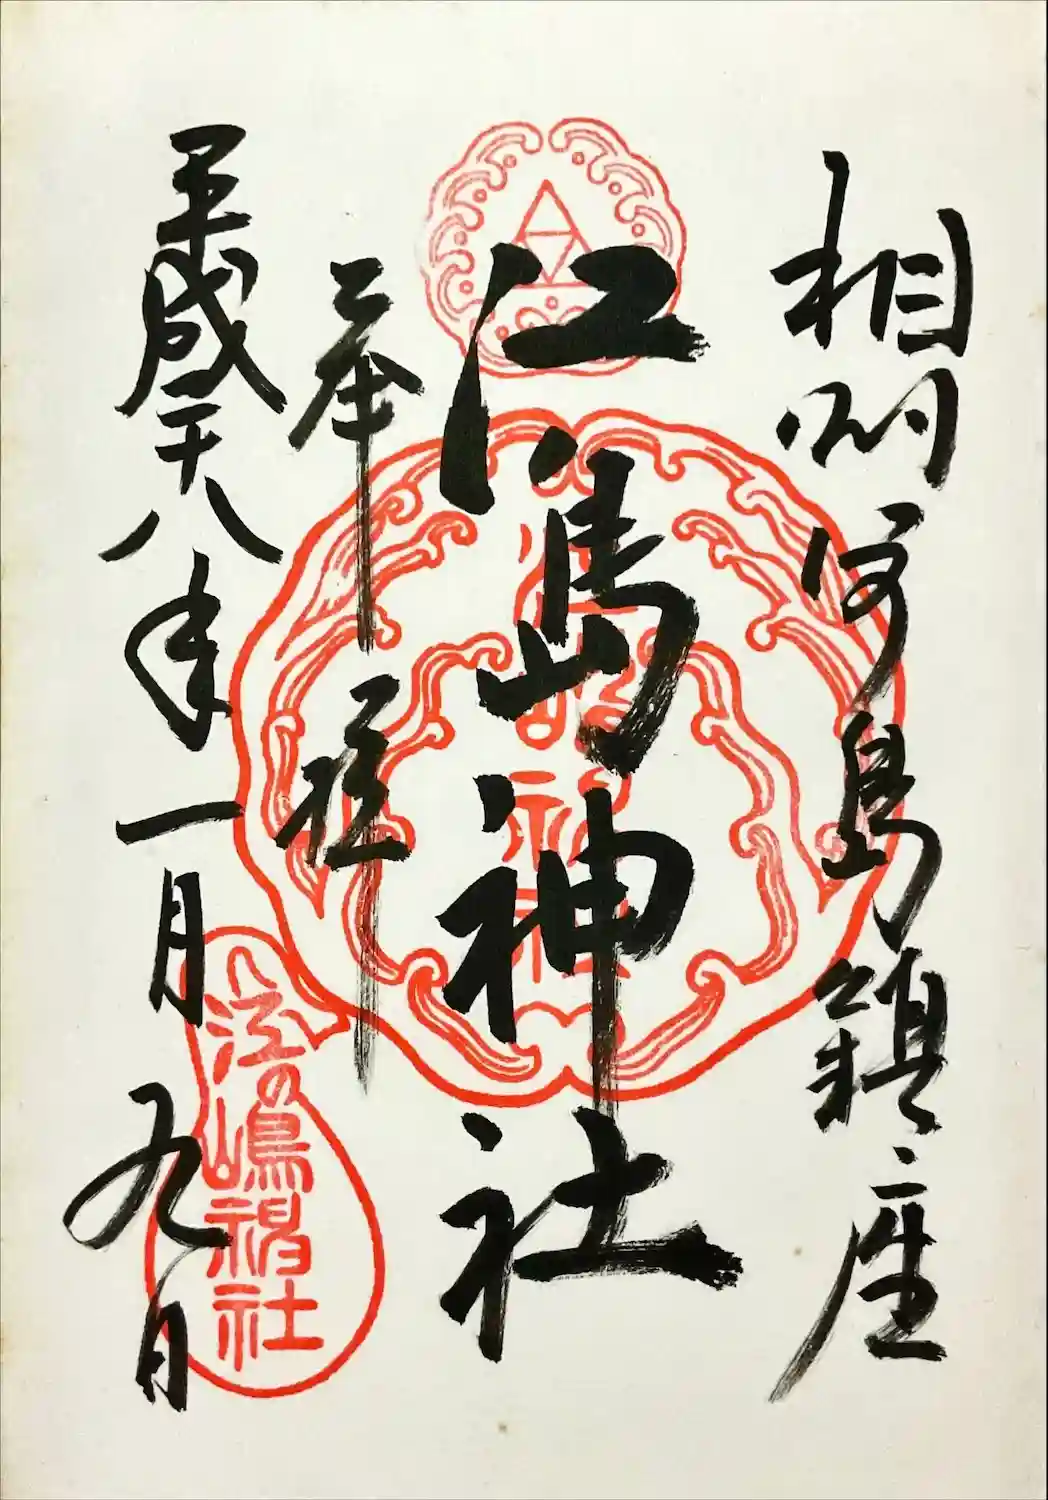 相州江島鎮座
江島神社
奉拝
平成二十八年一月九日
江の嶋神社